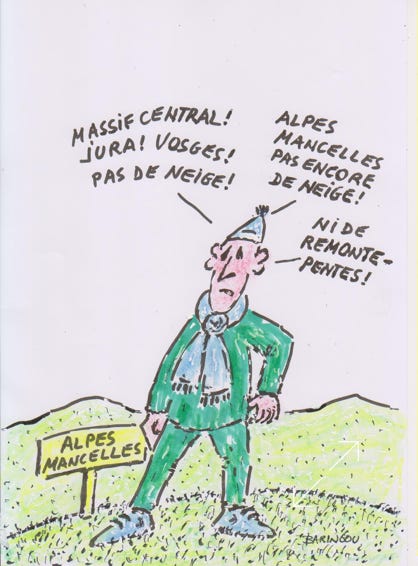 MASSIF CENTRAL!
JURA! VOSGES!
PAS DE NEIGE!
ALPES
MANCELLES
PAS ENCORE
DE NEIGE!
NI DE
REMONTE-
PENTES!
ALPES
MANCELLES
BARINGOU